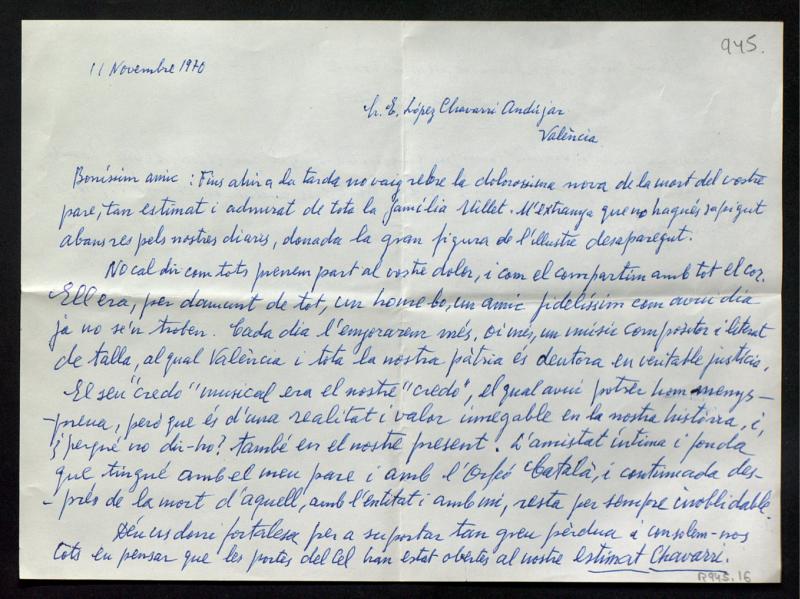 945.
11 Novembre 1970
Sr. E. López Chavarri Andújar
València
Boníssim amic: Fins ahir a la tarda no vaig rebre la dolorosíssima nova de la mort del vostre
pare, tan estimat i admirat de tota la família Millet. M'extranya que no hagués sapigut
abans res pels nostres diaris, donada la gran figura de l'il·lustre desaparegut.
No cal dir com tots prenem part al vostre dolor, i com el compartim amb tot el cor.
Ell era, per damunt de tot, un home bo, un amic fidelíssim com avui dia
ja no se'n troben. Cada dia l'enyorarem més. Oi més, un músic compositor i literat
de talla, al qual València i tota la nostra pàtria és deutora en veritable justícia.
El seu "credo" musical era el nostre "credo", el qual avui potser hom menys-
-prea, però que és d'una realitat i valor innegable en la nostra història, i,
¿perquè no dir-ho? també en el nostre present. L'amistat íntima i fonda
que tingué amb el meu pare i amb l'Orfeó Català, i continuada des-
-prés de la mort d'aquell, amb l'entitat i amb mi, resta per sempre inoblidable.
Déu us doni fortalesa per a suportar tan greu pèrdua i consolem-nos
tots en pensar que les portes del Cel han estat obertes al nostre estimat Chavarri.
R945.16